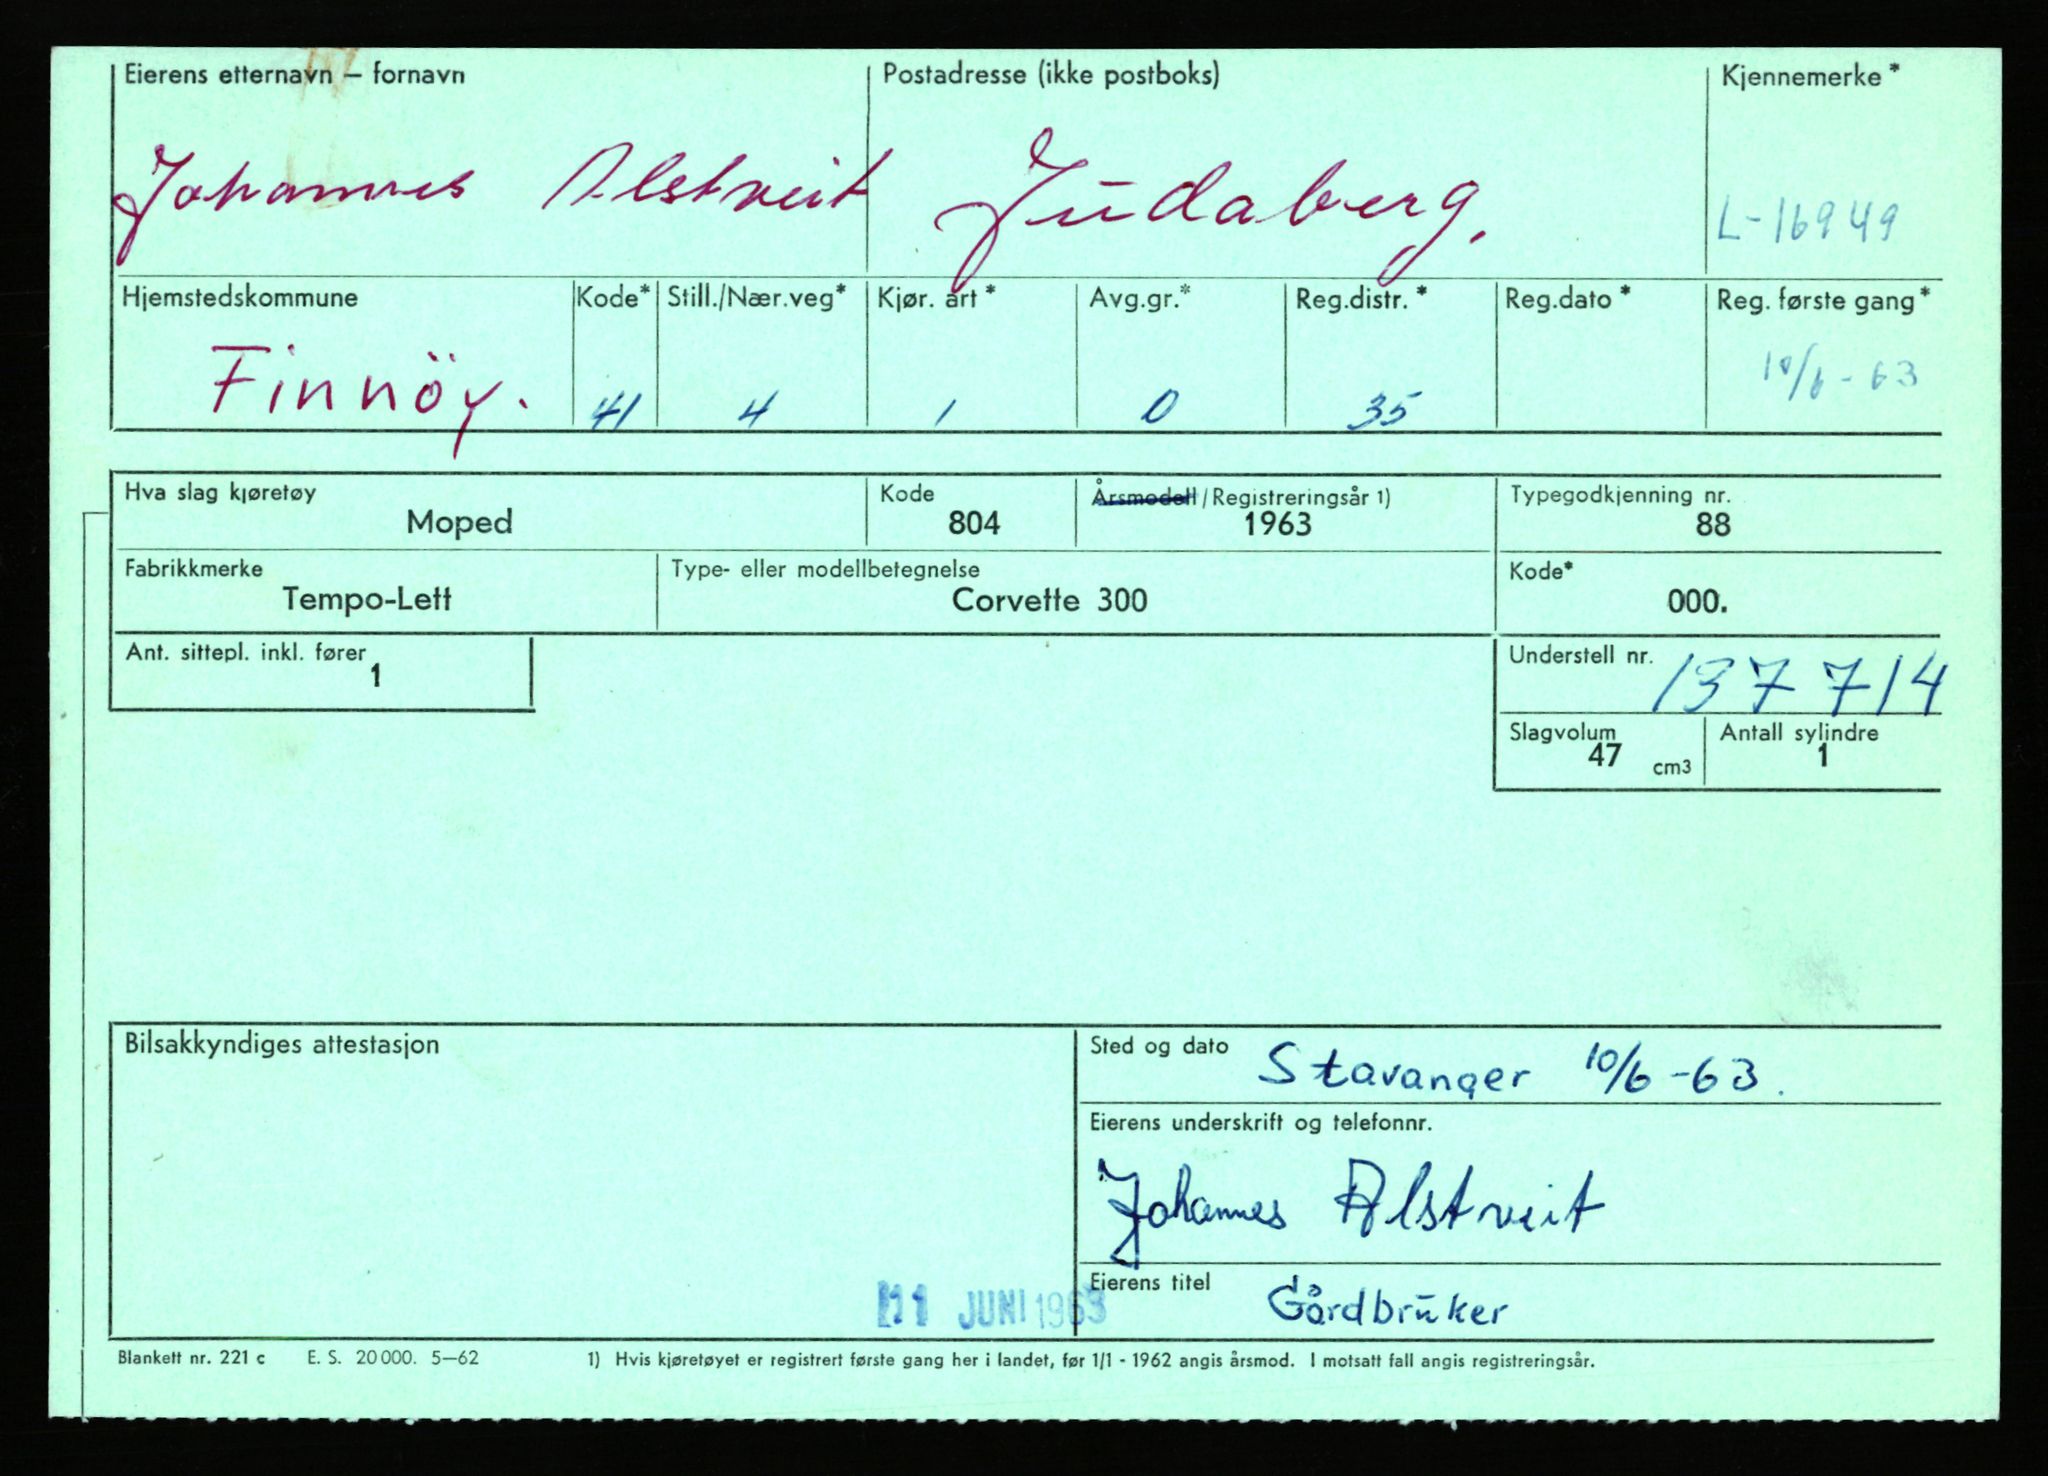 Eierens etternavn – fornavn Postadresse (ikke postboks) Kjennemerke*
Johannes Alstveit Judaberg. L-16949
Hjemstedskommune Kode* Still./Nær.veg* Kjør. art* Avg.gr.* Reg.distr.* Reg.dato* Reg. første gang*
Finnöy. 41 4 1 0 35 10/6-63
Hva slag kjøretøy Kode Årsmodell/Registreringsår 1) Typegodkjenning nr.
Moped 804 1963 88
Fabrikkmerke Type- eller modellbetegnelse Kode*
Tempo-Lett Corvette 300 000.
Ant. sittepl. inkl. fører Understell nr.
1 137714
Slagvolum Antall sylindre
47 cm3 1
Bilsakkyndiges attestasjon Sted og dato Stavanger 10/6-63.
Eierens underskrift og telefonnr.
Johannes Alstveit
Eierens titel Gårdbrūker
11 JUNI 1963
Blankett nr. 221 c E. S. 20000. 5–62 1) Hvis kjøretøyet er registrert første gang her i landet, før 1/1 - 1962 angis årsmod. I motsatt fall angis registreringsår.